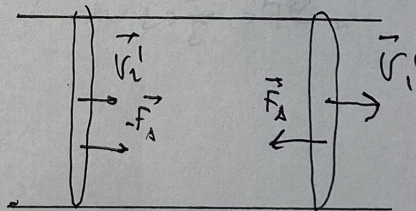 v⃗₂'
-F⃗_A
F⃗_A
v⃗₁'